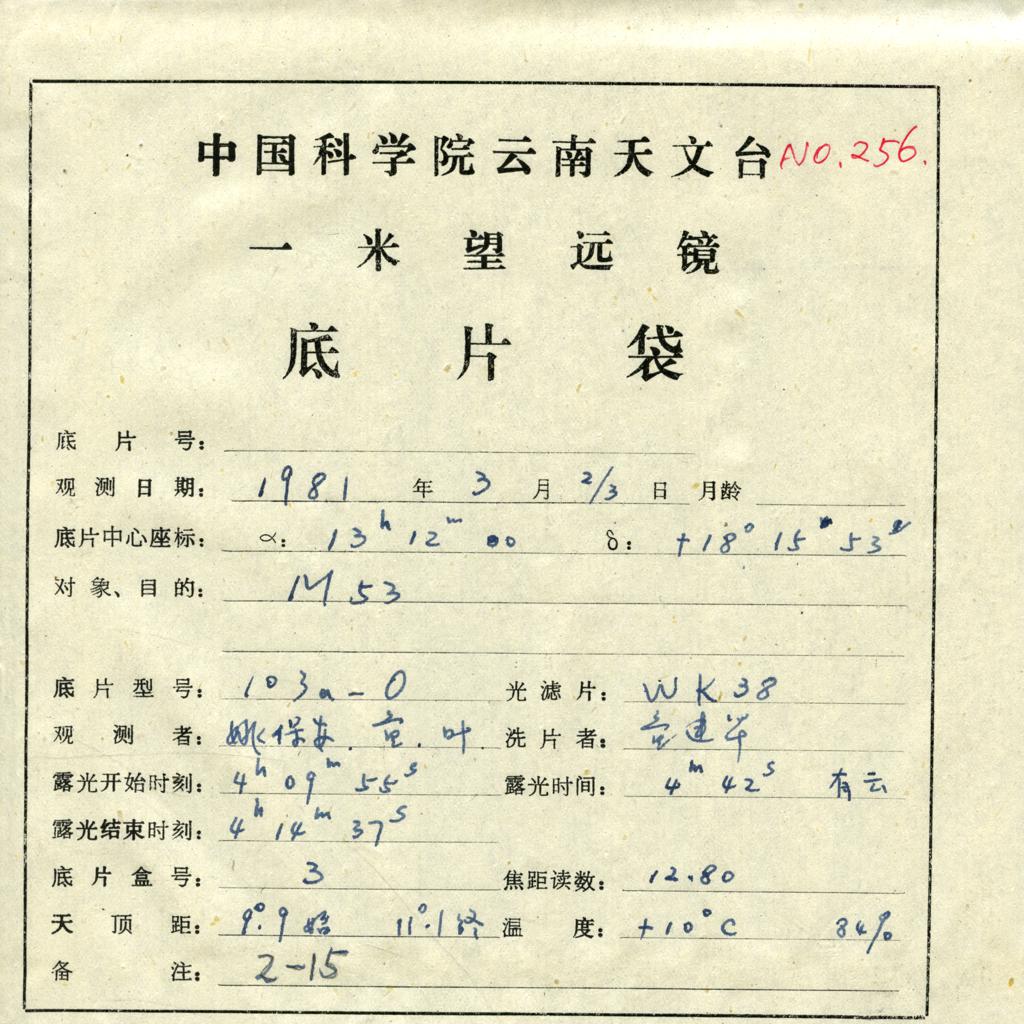 中国科学院云南天文台 NO.256.
一米望远镜
底片袋
底片号：
观测日期： 1981 年 3 月 2/3 日 月龄
底片中心座标： α： 13h 12m 00 δ： +18° 15′ 53″
对象、目的： M 53
底片型号： 103a-O 光滤片： WK 38
观测者： 姚保安. 童. 叶 洗片者： 童建华
露光开始时刻： 4h 09m 55s 露光时间： 4m 42s 有云
露光结束时刻： 4h 14m 37s
底片盒号： 3 焦距读数： 12.80
天顶距： 9°.9 始 11°.1 终 温度： +10°C 84%
备注： 2-15